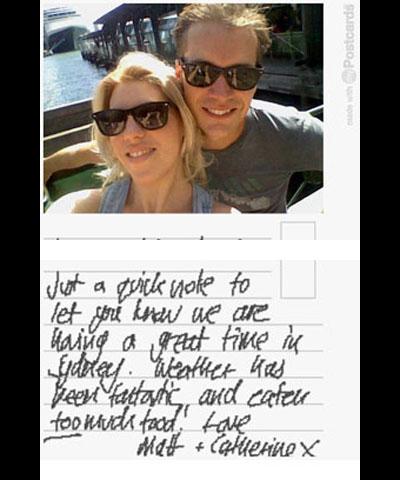 made with Postcards
Just a quick note to
let you know we are
having a great time in
Sydney. Weather has
been fantastic and eaten
too much food! Love
Matt + Catherine x